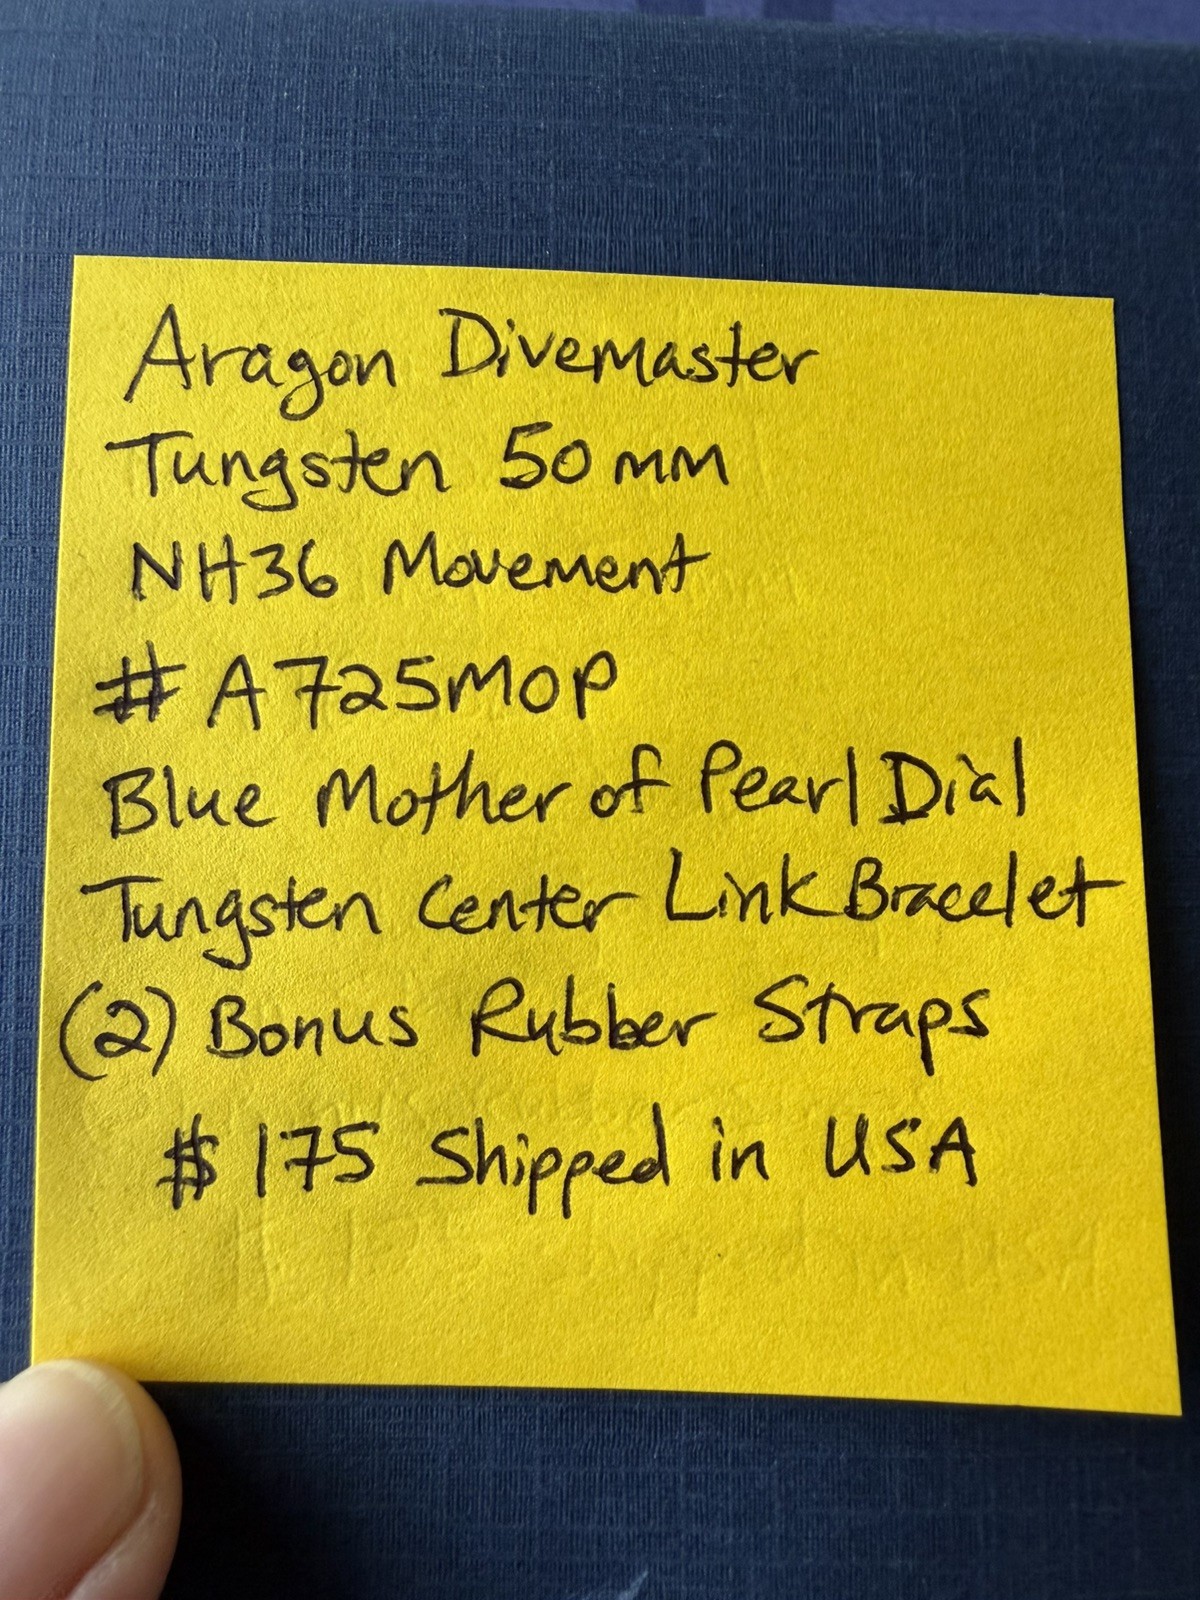 Aragon Divemaster
Tungsten 50mm
NH36 Movement
# A725MOP
Blue Mother of Pearl Dial
Tungsten Center Link Bracelet
(2) Bonus Rubber Straps
$175 Shipped in USA